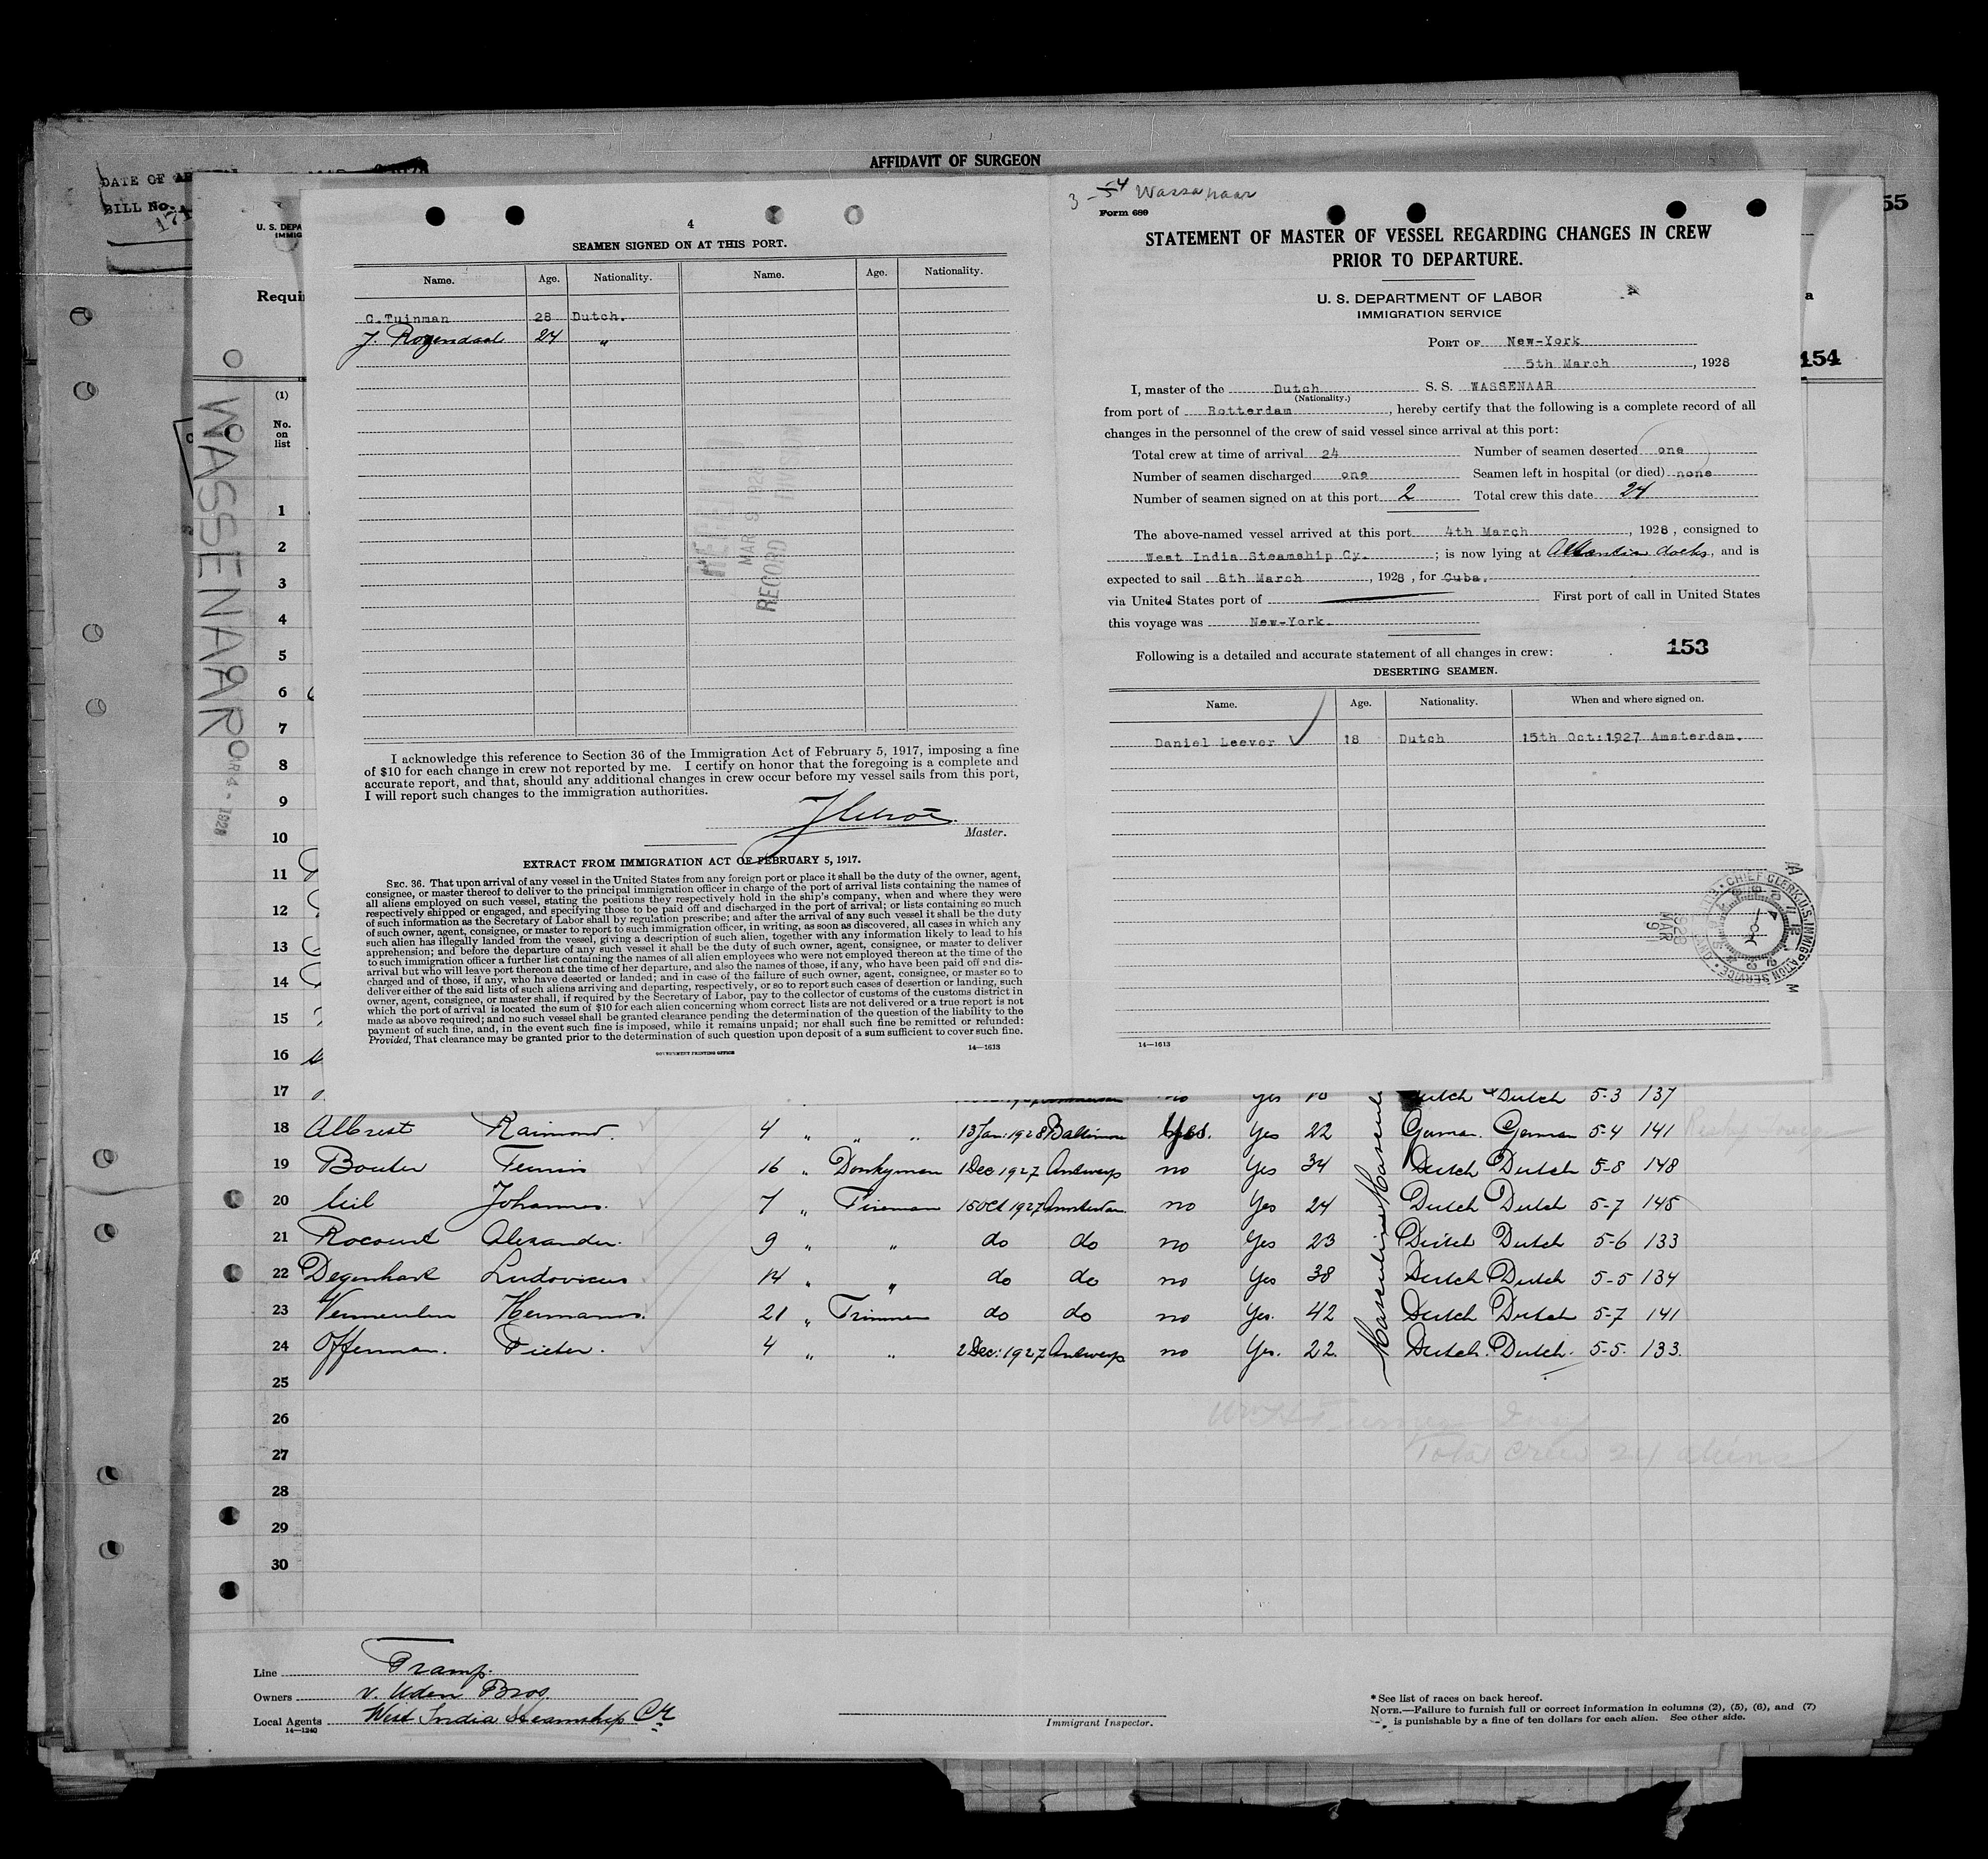 AFFIDAVIT OF SURGEON
DATE OF
BILL No.
171
55
154
a
U. S. DEPA
IMMIG
Requi
WASSENAAR
MAR 4 - 1928
(1)
No.
on
list
1
2
3
4
5
6
7
8
9
10
11
12
13
14
15
16
4
SEAMEN SIGNED ON AT THIS PORT.
Name. Age. Nationality. Name. Age. Nationality.
C. Tuinman 28 Dutch.
J. Rozendaal 24 "
MAR 9 1928
RECORD DIVISION
I acknowledge this reference to Section 36 of the Immigration Act of February 5, 1917, imposing a fine
of $10 for each change in crew not reported by me. I certify on honor that the foregoing is a complete and
accurate report, and that, should any additional changes in crew occur before my vessel sails from this port,
I will report such changes to the immigration authorities.
Master.
EXTRACT FROM IMMIGRATION ACT OF FEBRUARY 5, 1917.
SEC. 36. That upon arrival of any vessel in the United States from any foreign port or place it shall be the duty of the owner, agent,
consignee, or master thereof to deliver to the principal immigration officer in charge of the port of arrival lists containing the names of
all aliens employed on such vessel, stating the positions they respectively hold in the ship's company, when and where they were
respectively shipped or engaged, and specifying those to be paid off and discharged in the port of arrival; or lists containing so much
of such information as the Secretary of Labor shall by regulation prescribe; and after the arrival of any such vessel it shall be the duty
of such owner, agent, consignee, or master to report to such immigration officer, in writing, as soon as discovered, all cases in which any
such alien has illegally landed from the vessel, giving a description of such alien, together with any information likely to lead to his
apprehension; and before the departure of any such vessel it shall be the duty of such owner, agent, consignee, or master to deliver
to such immigration officer a further list containing the names of all alien employees who were not employed thereon at the time of the
arrival but who will leave port thereon at the time of her departure, and also the names of those, if any, who have been paid off and dis-
charged and of those, if any, who have deserted or landed; and in case of the failure of such owner, agent, consignee, or master so to
deliver either of the said lists of such aliens arriving and departing, respectively, or so to report such cases of desertion or landing, such
owner, agent, consignee, or master shall, if required by the Secretary of Labor, pay to the collector of customs of the customs district in
which the port of arrival is located the sum of $10 for each alien concerning whom correct lists are not delivered or a true report is not
made as above required; and no such vessel shall be granted clearance pending the determination of the question of the liability to the
payment of such fine, and, in the event such fine is imposed, while it remains unpaid; nor shall such fine be remitted or refunded:
Provided, That clearance may be granted prior to the determination of such question upon deposit of a sum sufficient to cover such fine.
GOVERNMENT PRINTING OFFICE
14—1613
3-54 Wassanaar
Form 689
STATEMENT OF MASTER OF VESSEL REGARDING CHANGES IN CREW
PRIOR TO DEPARTURE.
U. S. DEPARTMENT OF LABOR
IMMIGRATION SERVICE
PORT OF New-York
5th March, 1928
I, master of the Dutch S. S. WASSENAAR
(Nationality.)
from port of Rotterdam, hereby certify that the following is a complete record of all
changes in the personnel of the crew of said vessel since arrival at this port:
Total crew at time of arrival 24 Number of seamen deserted one
Number of seamen discharged one Seamen left in hospital (or died) none
Number of seamen signed on at this port 2 Total crew this date 24
The above-named vessel arrived at this port 4th March, 1928, consigned to
West India Steamship Cy.; is now lying at Atlantic docks, and is
expected to sail 8th March, 1928, for Cuba.
via United States port of First port of call in United States
this voyage was New-York.
153
Following is a detailed and accurate statement of all changes in crew:
DESERTING SEAMEN.
Name. Age. Nationality. When and where signed on.
Daniel Leever 18 Dutch 15th Oct:1927 Amsterdam.
CHIEF CLERK, U.S. IMMIGRATION SERVICE
1928 MAR 9
14—1613
17 no yes Dutch Dutch 5-3 137
18 Albrest Raimond. 4 " " " 13 Jan: 1928 Baltimore Yes. Yes 22 German. German 5-4 141
19 Bouter Teunis 16 " Donkyman 1 Dec 1927 Antwerp no Yes 34 Dutch Dutch 5-8 148
20 Johannes. 7 " Fireman 15 Oct 1927 Amsterdam. no Yes 24 Dutch Dutch 5-7 145
21 Rocourt Alexander. 9 " " do do no Yes 23 Dutch Dutch 5-6 133
22 Degenhart Ludovicus 14 " " do do no Yes 38 Dutch Dutch 5-5 134
23 Vermeulen Hermanus. 21 " Trimmer do do no Yes. 42 Dutch Dutch 5-7 141
24 Offerman. Pieter. 4 " " 2 Dec: 1927 Antwerp no Yes. 22. Dutch. Dutch. 5-5. 133.
Masculine
25
26
27
28
29
30
Total crew 24 aliens
Line Tramp.
Owners v. Uden Bros.
Local Agents West India Steamship Cy
14—1240
Immigrant Inspector.
* See list of races on back hereof.
NOTE.—Failure to furnish full or correct information in columns (2), (5), (6), and (7)
is punishable by a fine of ten dollars for each alien. See other side.